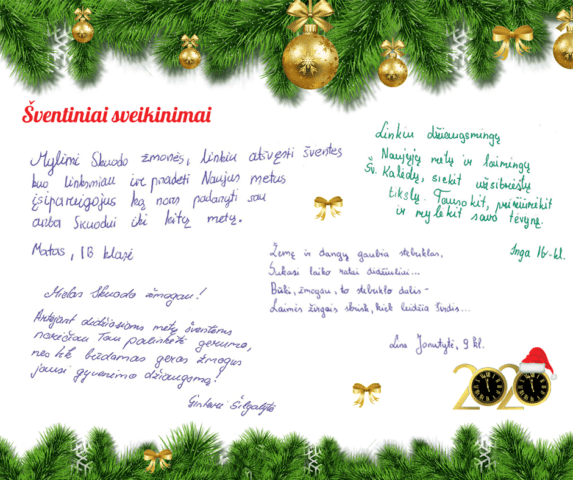 Šventiniai sveikinimai
Mylimi Skuodo žmonės, linkiu atšvęsti šventes
kuo linksmiau ir pradėti Naujus metus
įsipareigojus ką nors padaryti sau
arba Skuodui iki kitų metų.
Matas, IB klasė
Linkiu džiaugsmingų
Naujųjų metų ir laimingų
Šv. Kalėdų, siekit užsibrėžtų
tikslų. Tausokit, prisiminkit
ir mylėkit savo tėvynę.
Inga IIv kl.
Žemę ir dangų gaubia stebuklas,
Sukasi laiko ratai didžiuliai...
Būki, žmogau, to stebuklo dalis -
Laimės žirgais skrisk, kiek leidžia širdis...
Lina Jonutytė, 9 kl.
Mielas Skuodo žmogau!
Artėjant didžiosioms metų šventėms
norėčiau Tau palinkėti gerumo,
nes tik būdamas geras žmogus
jausi gyvenimo džiaugsmą!
Gintarė Šilgalytė
2020